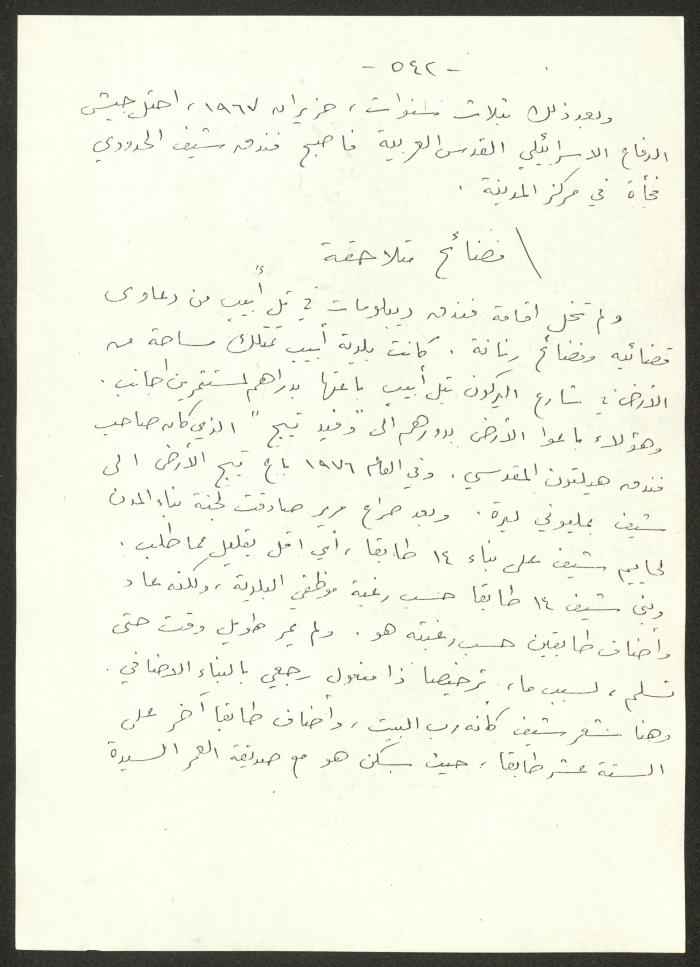 - ٥٤٢ -
وبعد ذلك بثلاث سنوات ، حزيران ١٩٦٧ ، احتل جيش
الدفاع الاسرائيلي القدس العربية فاصبح فندق شيف الحدودي
فجأة في مركز المدينة .
فضائح متلاحقة
ولم تخل اقامة فندق ديبلومات في تل أبيب من دعاوى
قضائيه وفضائح رنانة . كانت بلدية أبيب تمتلك مساحة من
الأرض في شارع اليركون بتل أبيب باعتها بدراهم لمستثمرين اجانب .
وهؤلاء باعوا الأرض بدورهم الى "دفيد تييج" الذي كان صاحب
فندق هيلتون المقدسي . وفي العام ١٩٧٦ باع تييج الأرض الى
شيف بمليوني ليرة . وبعد صراع مرير صادقت لجنة بناء المدن
لحاييم شيف على بناء ١٤ طابقا ، أي اقل بقليل مما طلب .
وبنى شيف ١٤ طابقا حسب رغبة موظفي البلدية ، ولكنه عاد
وأضاف طابقين حسب رغبته هو . ولم يمر طويل وقت حتى
تسلم ، لسبب ما ، ترخيصا ذا مفعول رجعي بالبناء الاضافي .
وهنا شعر شيف كأنه رب البيت ، وأضاف طابقا آخر على
الستة عشر طابقا ، حيث سكن هو مع صديقة العمر السيدة